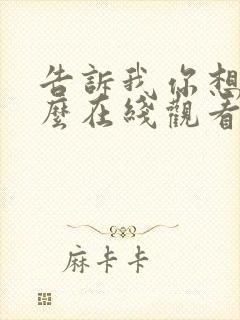 告訴我你想
麼在綫觀看
麻卡卡